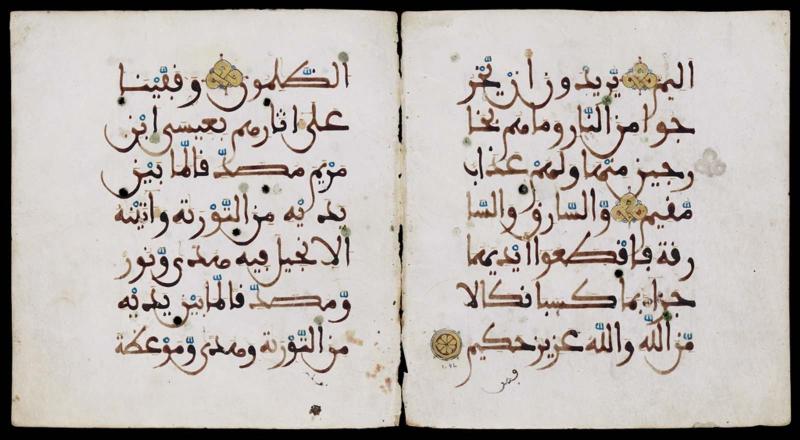 اليم يريدون ان يخر
جوا من النار وما هم بخا
رجين منها ولهم عذاب
مقيم والسارق والسا
رقة فاقطعوا ايديهما
جزا بما كسبا نكالا
من الله والله عزيز حكيم
الظلمون وقفينا
على اثارهم بعيسى ابن
مريم مصدقا لما بين
يديه من التورية واتينه
الانجيل فيه هدى ونور
ومصدقا لما بين يديه
من التورية وهدى وموعظة